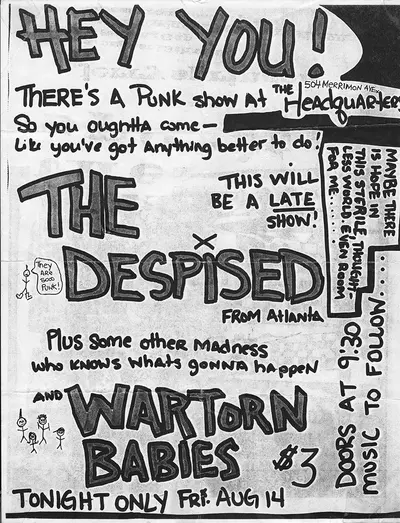 HEY YOU!
THERE'S A PUNK SHOW AT THE HEADQUARTERS
504 MERRIMON AVE.
So you oughtta come—
Like you've got anything better to do!
THIS WILL
BE A LATE
SHOW!
MAYBE THERE
IS HOPE IN
THIS STERILE, THOUGHT-
LESS WORLD. EVEN ROOM
FOR ME......
THE
DESPISED
FROM Atlanta
They
ARE
sooo
PUNK!
Plus some other madness
who knows whats gonna happen
AND WARTORN
BABIES
$3
DOORS AT 9:30
MUSIC TO FOLLOW....
TONIGHT ONLY FRI. AUG 14